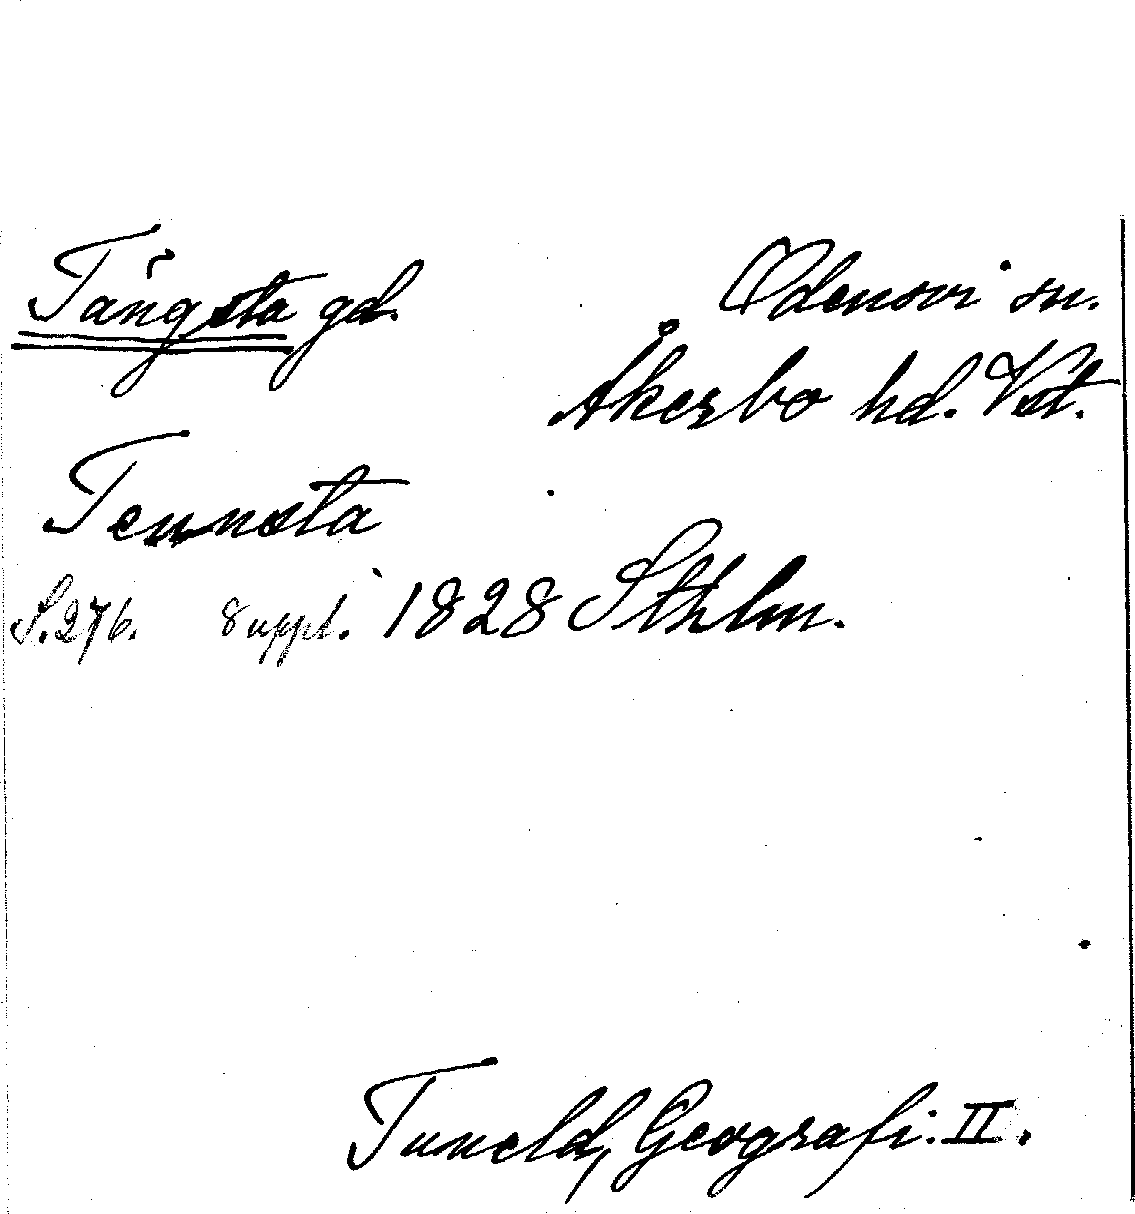 Tängsta gd. Odensvi sn.
Åkerbo hd. Vst.
Tennsta
S. 276. 8 uppl. 1828 Sthlm.
Tuneld, Geografi. II.